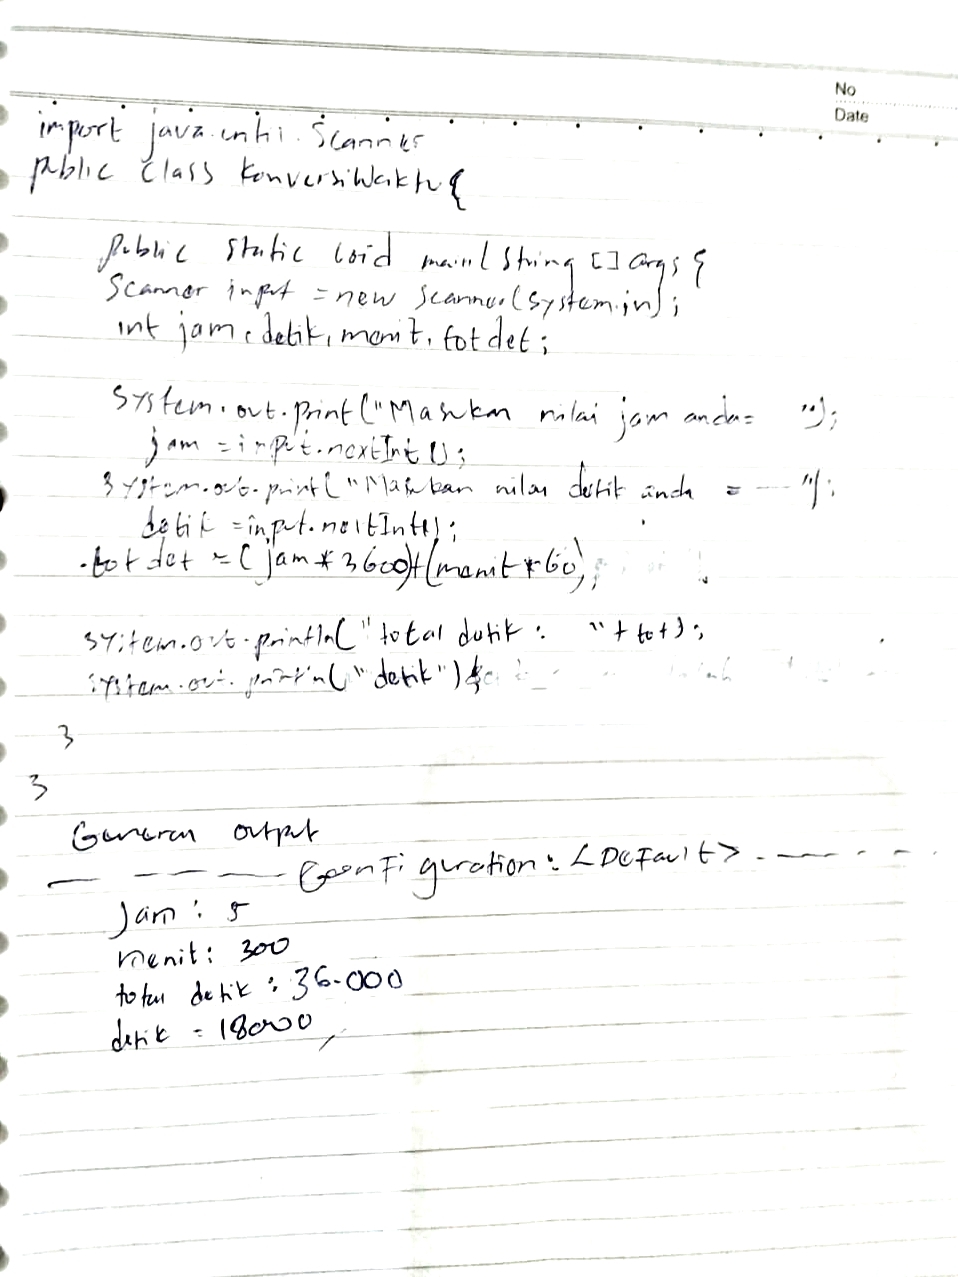 No
Date
import java.unti.Scanner
public class KonversiWaktu{
public static void main(String [] args {
Scanner input = new Scanner(System.in);
int jam, detik, menit, tot det;
System.out.print("Masukan nilai jam anda= ");
jam = input.nextInt();
System.out.print("Masukan nilai detik anda = ");
detik = input.nextInt();
tot det = (jam*3600)+(menit*60);
System.out.println("total detik : "+ tot);
System.out.println("detik")
}
}
General output
Configuration: <Default>
Jam : 5
menit : 300
total detik : 36.000
detik = 18000